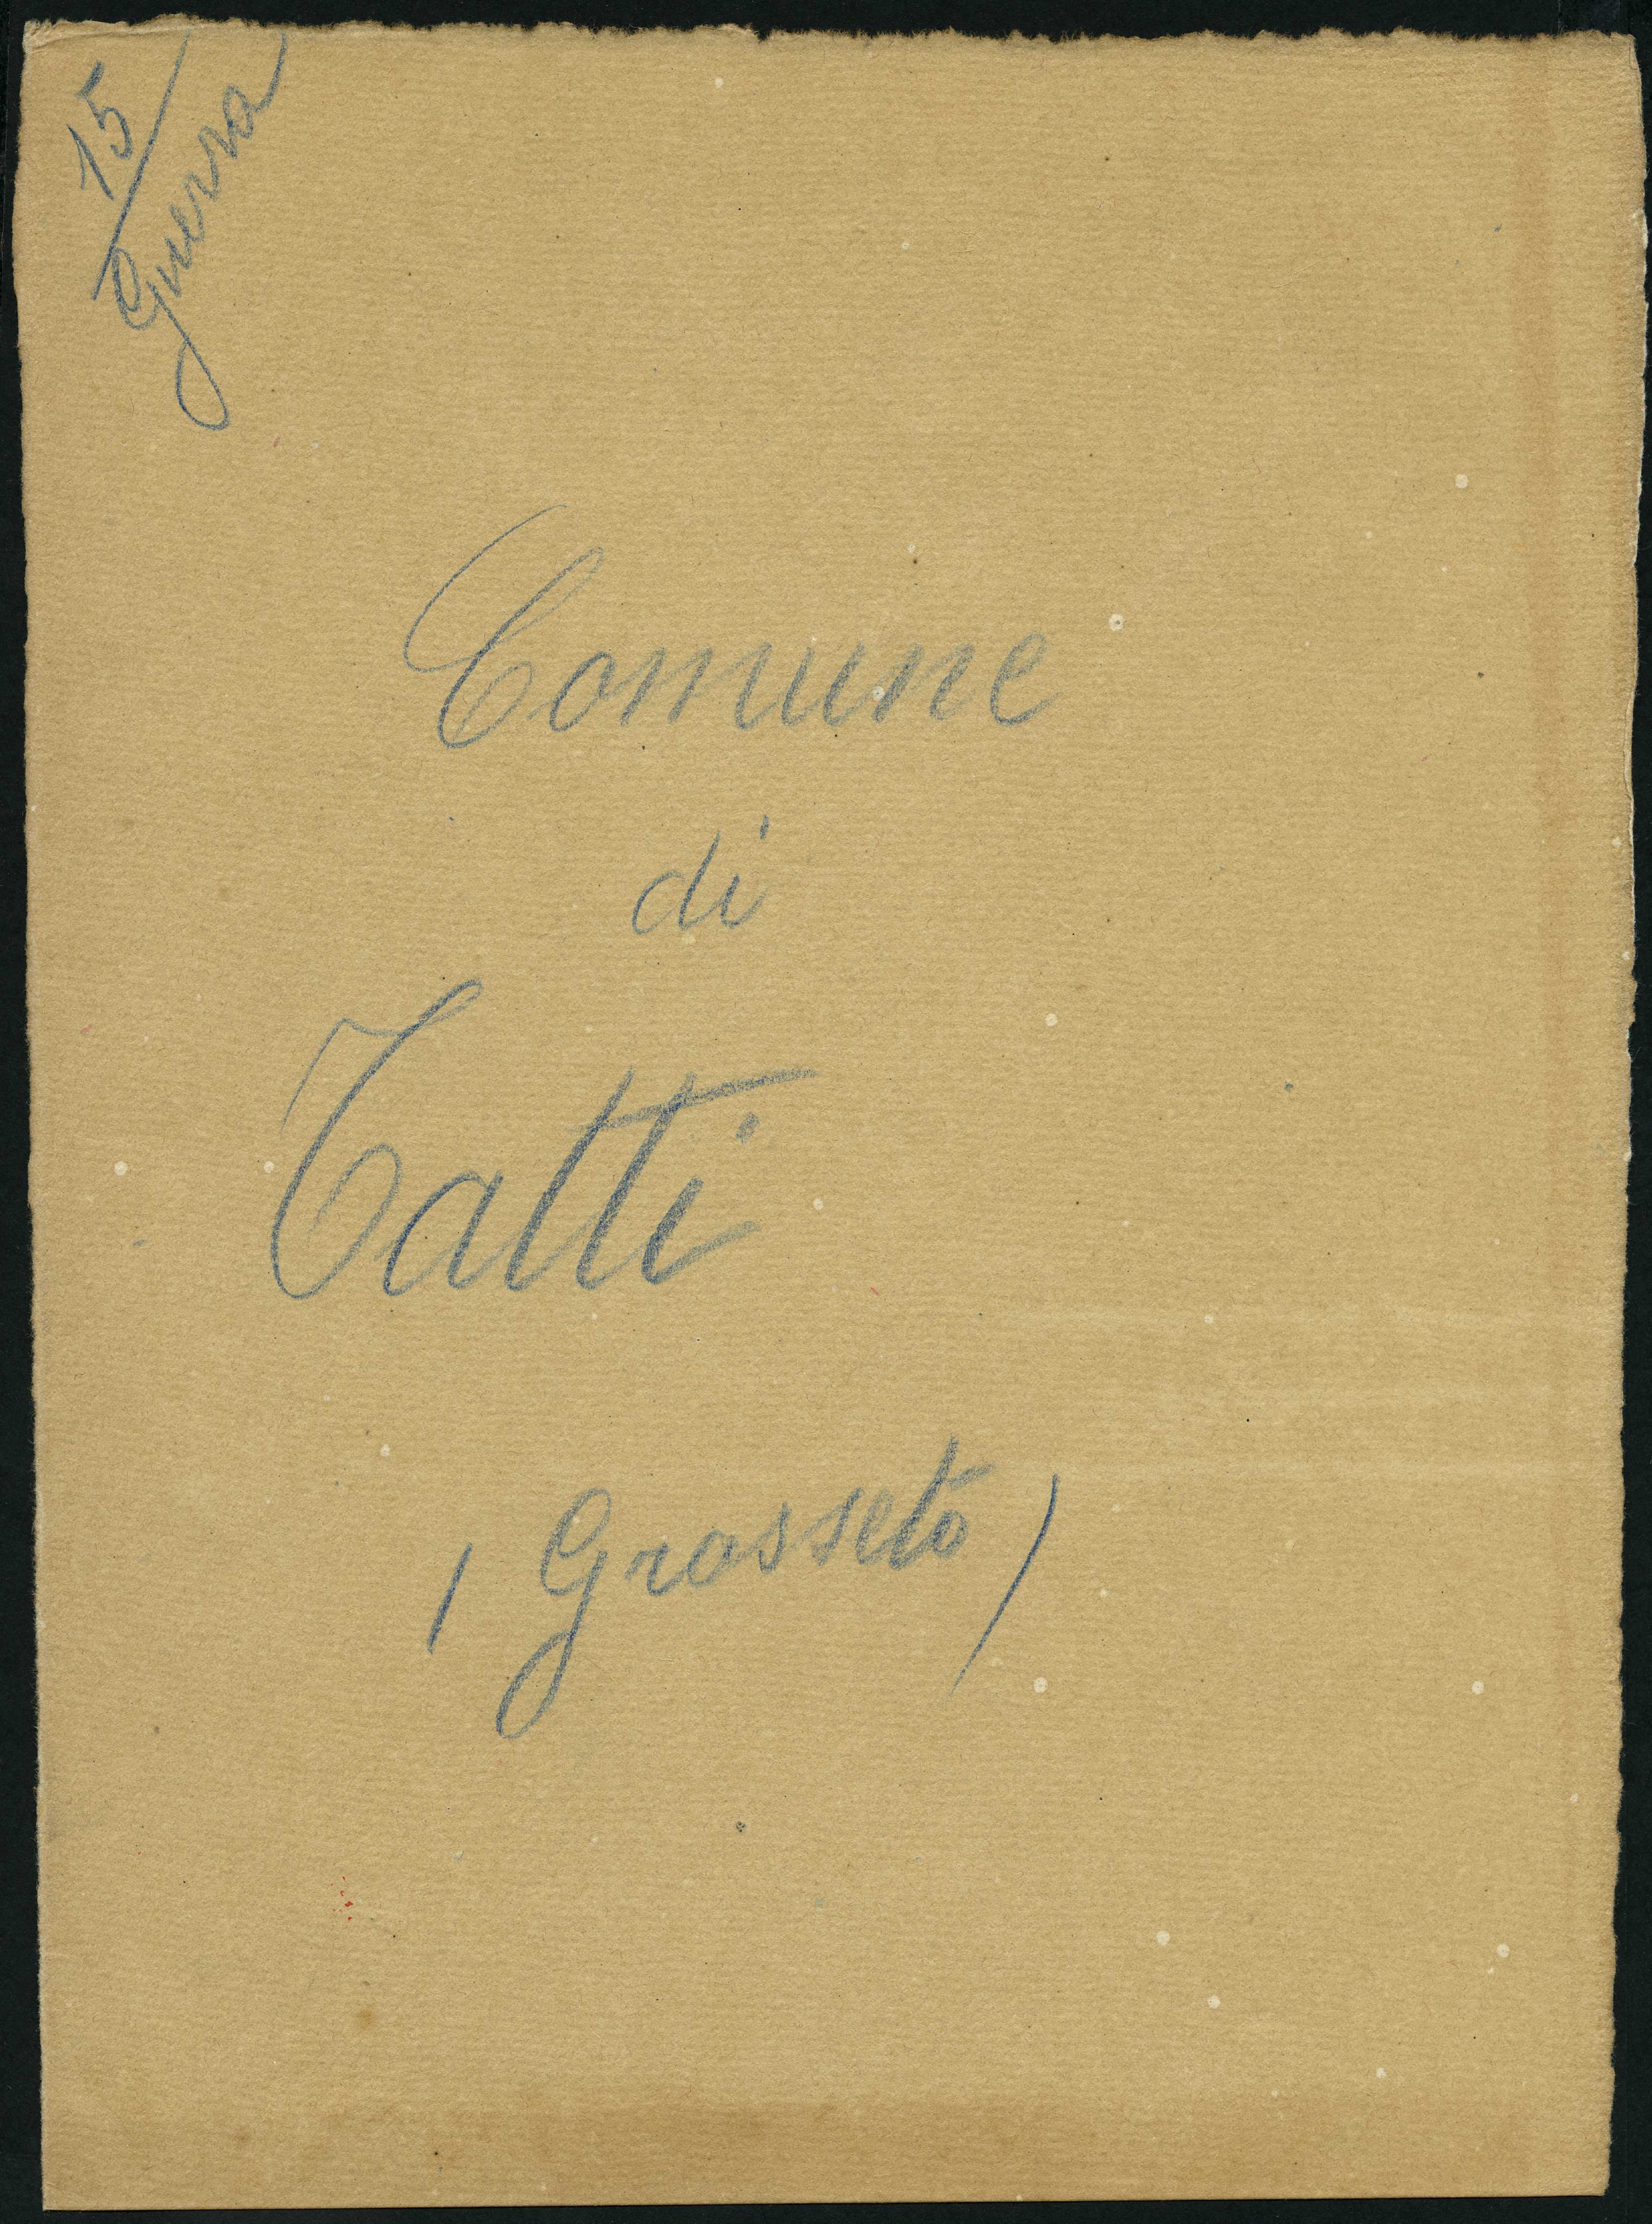 15/Guerra
Comune
di
Tatti
(Grosseto)